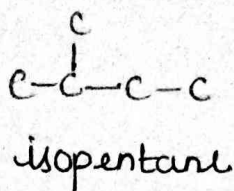 C
C-C-C-C
isopentane